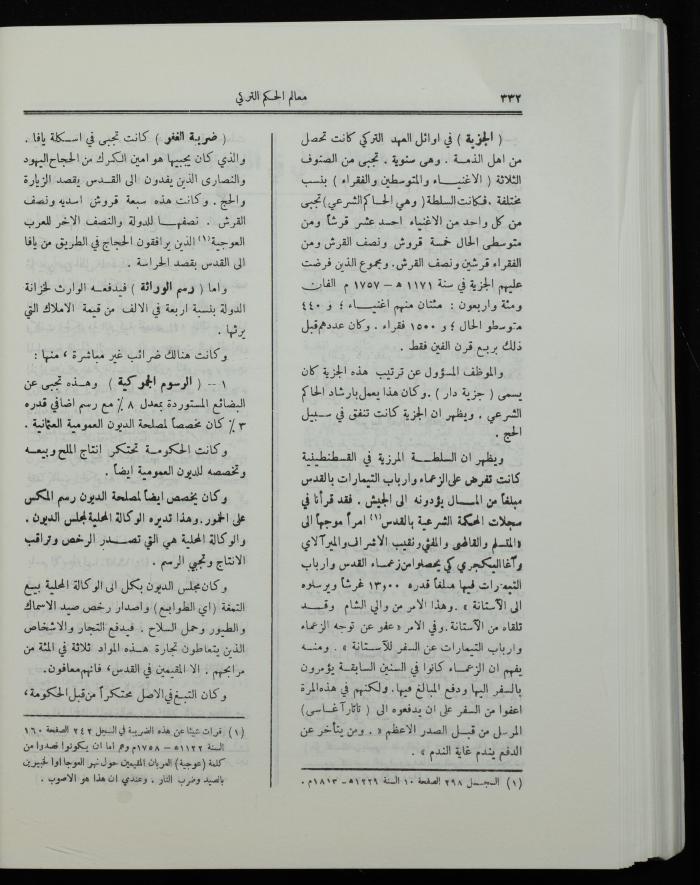 ٣٣٢
معالم الحكم التركي
( الجزية ) في اوائل العهد التركي كانت تحصل
من اهل الذمة . وهى سنوية . تجبى من الصنوف
الثلاثة ( الاغنيـاء والمتوسطين والفقراء ) بنسب
مختلفة . فكانت السلطة ( وهي الحاكم الشرعي ) تجبى
من كل واحد من الاغنياء احد عشر قرشاً ومن
متوسطى الحال خمسة قروش ونصف القرش ومن
الفقراء قرشين ونصف القرش. ومجموع الذين فرضت
عليهم الجزية في سنة ١١٧١ ه – ١٧٥٧ م الفان
ومئة واربعون : مئتان منهم اغنيـاء ؛ و ٤٤٠
متوسطو الحال ؛ و ١٥٠٠ فقراء . وكان عددهم قبل
ذلك بربع قرن الفين فقط .
والموظف المسؤول عن ترتيب هذه الجزية كان
يسمى ( جزية دار ) . وكان هذا يعمل بارشاد الحاكم
الشرعي . ويظهر ان الجزية كانت تنفق في سبيل
الحج .
ويظهر ان السلطـة المرزية في القسطنطينية
كانت تفرض على الزعماء وارباب التيمارات بالقدس
مبلغاً من المـال يؤدونه الى الجيش . فقد قرأنا في
سجلات المحكمة الشرعية بالقدس(١) امراً موجهاً الى
«المتسلم والقاضى والمفتي ونقيب الاشراف والميرآلاي
وآغا اليكجري كي يحصلوا من زعماء القدس وارباب
التيمارات فيها مبلغاً قدره ١٣,٠٠ غرشاً ويرسلوه
الى الآستانة » . وهذا الامر من والي الشام وقـد
تلقاه من الآستانة . وفي الامر «عفو عن توجه الزعماء
وارباب التيمارات عن السفر للآستانة » . ومنـه
يفهم ان الزعمـاء كانوا في السنين السابقـة يؤمرون
بالسفر اليها ودفع المبالغ فيها. ولكنهم في هذه المرة
اعفوا من السفر على ان يدفعوه الى ( تاتار آغـاسى )
المرسل من قبـل الصدر الاعظم « . ومن يتأخر عن
الدفع يندم غاية الندم » .
(١) السجـل ٢٩٨ الصفحة ١٠ السنة ١٢٢٩ه – ١٨١٣م .
( ضريبة الغفر ) كانت تجبى في اسكلة يافا .
والذي كان يجبيها هو امين الكمرك من الحجاج اليهود
والنصارى الذين يفدون الى القـدس بقصد الزيارة
والحج . وكانت هذه سبعة قروش اسديه ونصف
القرش . نصفهـا للدولة والنصف الاخر للعرب
العوجية(١) الذين يرافقون الحجاج في الطريق من يافا
الى القدس بقصد الحراسة .
واما ( رسم الوراثة ) فيدفعـه الوارث لخزانة
الدولة بنسبة اربعة في الالف من قيمة الاملاك التي
يرثها .
وكانت هنالك ضرائب غير مباشرة ، منها :
١ – ( الرسوم الجمركية ) وهـذه تجبى عن
البضائع المستوردة بمعدل ٨٪ مع رسم اضافي قدره
٣٪ كان مخصصاً لمصلحة الديون العمومية العثمانية .
وكانت الحكومـة تحتكر انتاج الملح وبيعـه
وتخصصه للديون العمومية ايضاً .
وكان يخصص ايضاً لمصلحة الديون رسم المكس
على الخمور. وهذا تديره الوكالة المحلية لمجلس الديون .
والوكالة المحلية هي التي تصـدر الرخص وتراقب
الانتاج وتجبي الرسم .
وكان مجلس الديون يكل الى الوكالة المحلية بيع
التمغة (اي الطوابع) واصدار رخص صيد الاسماك
والطيور وحمل السلاح . فيدفع التجار والاشخاص
الذين يتعاطون تجارة هـذه المواد ثلاثة في المئة من
مرابحهم . الا المقيمين في القدس ، فانهم معافون.
وكان التبـغ في الاصل محتكراً من قبل الحكومة،
(١) قرأت شيئاً عن هذه الضريبة في السجل ٢٤٢ الصفحة ١٦٠
السنة ١١٢٢ه – ١٧٥٨م وهم اما ان يكونوا قصدوا من
كلمة (عوجية) العربان المقيمين حول نهر العوجا او الخبيرين
بالصيد وضرب النار . وعندي ان هذا هو الاصوب .